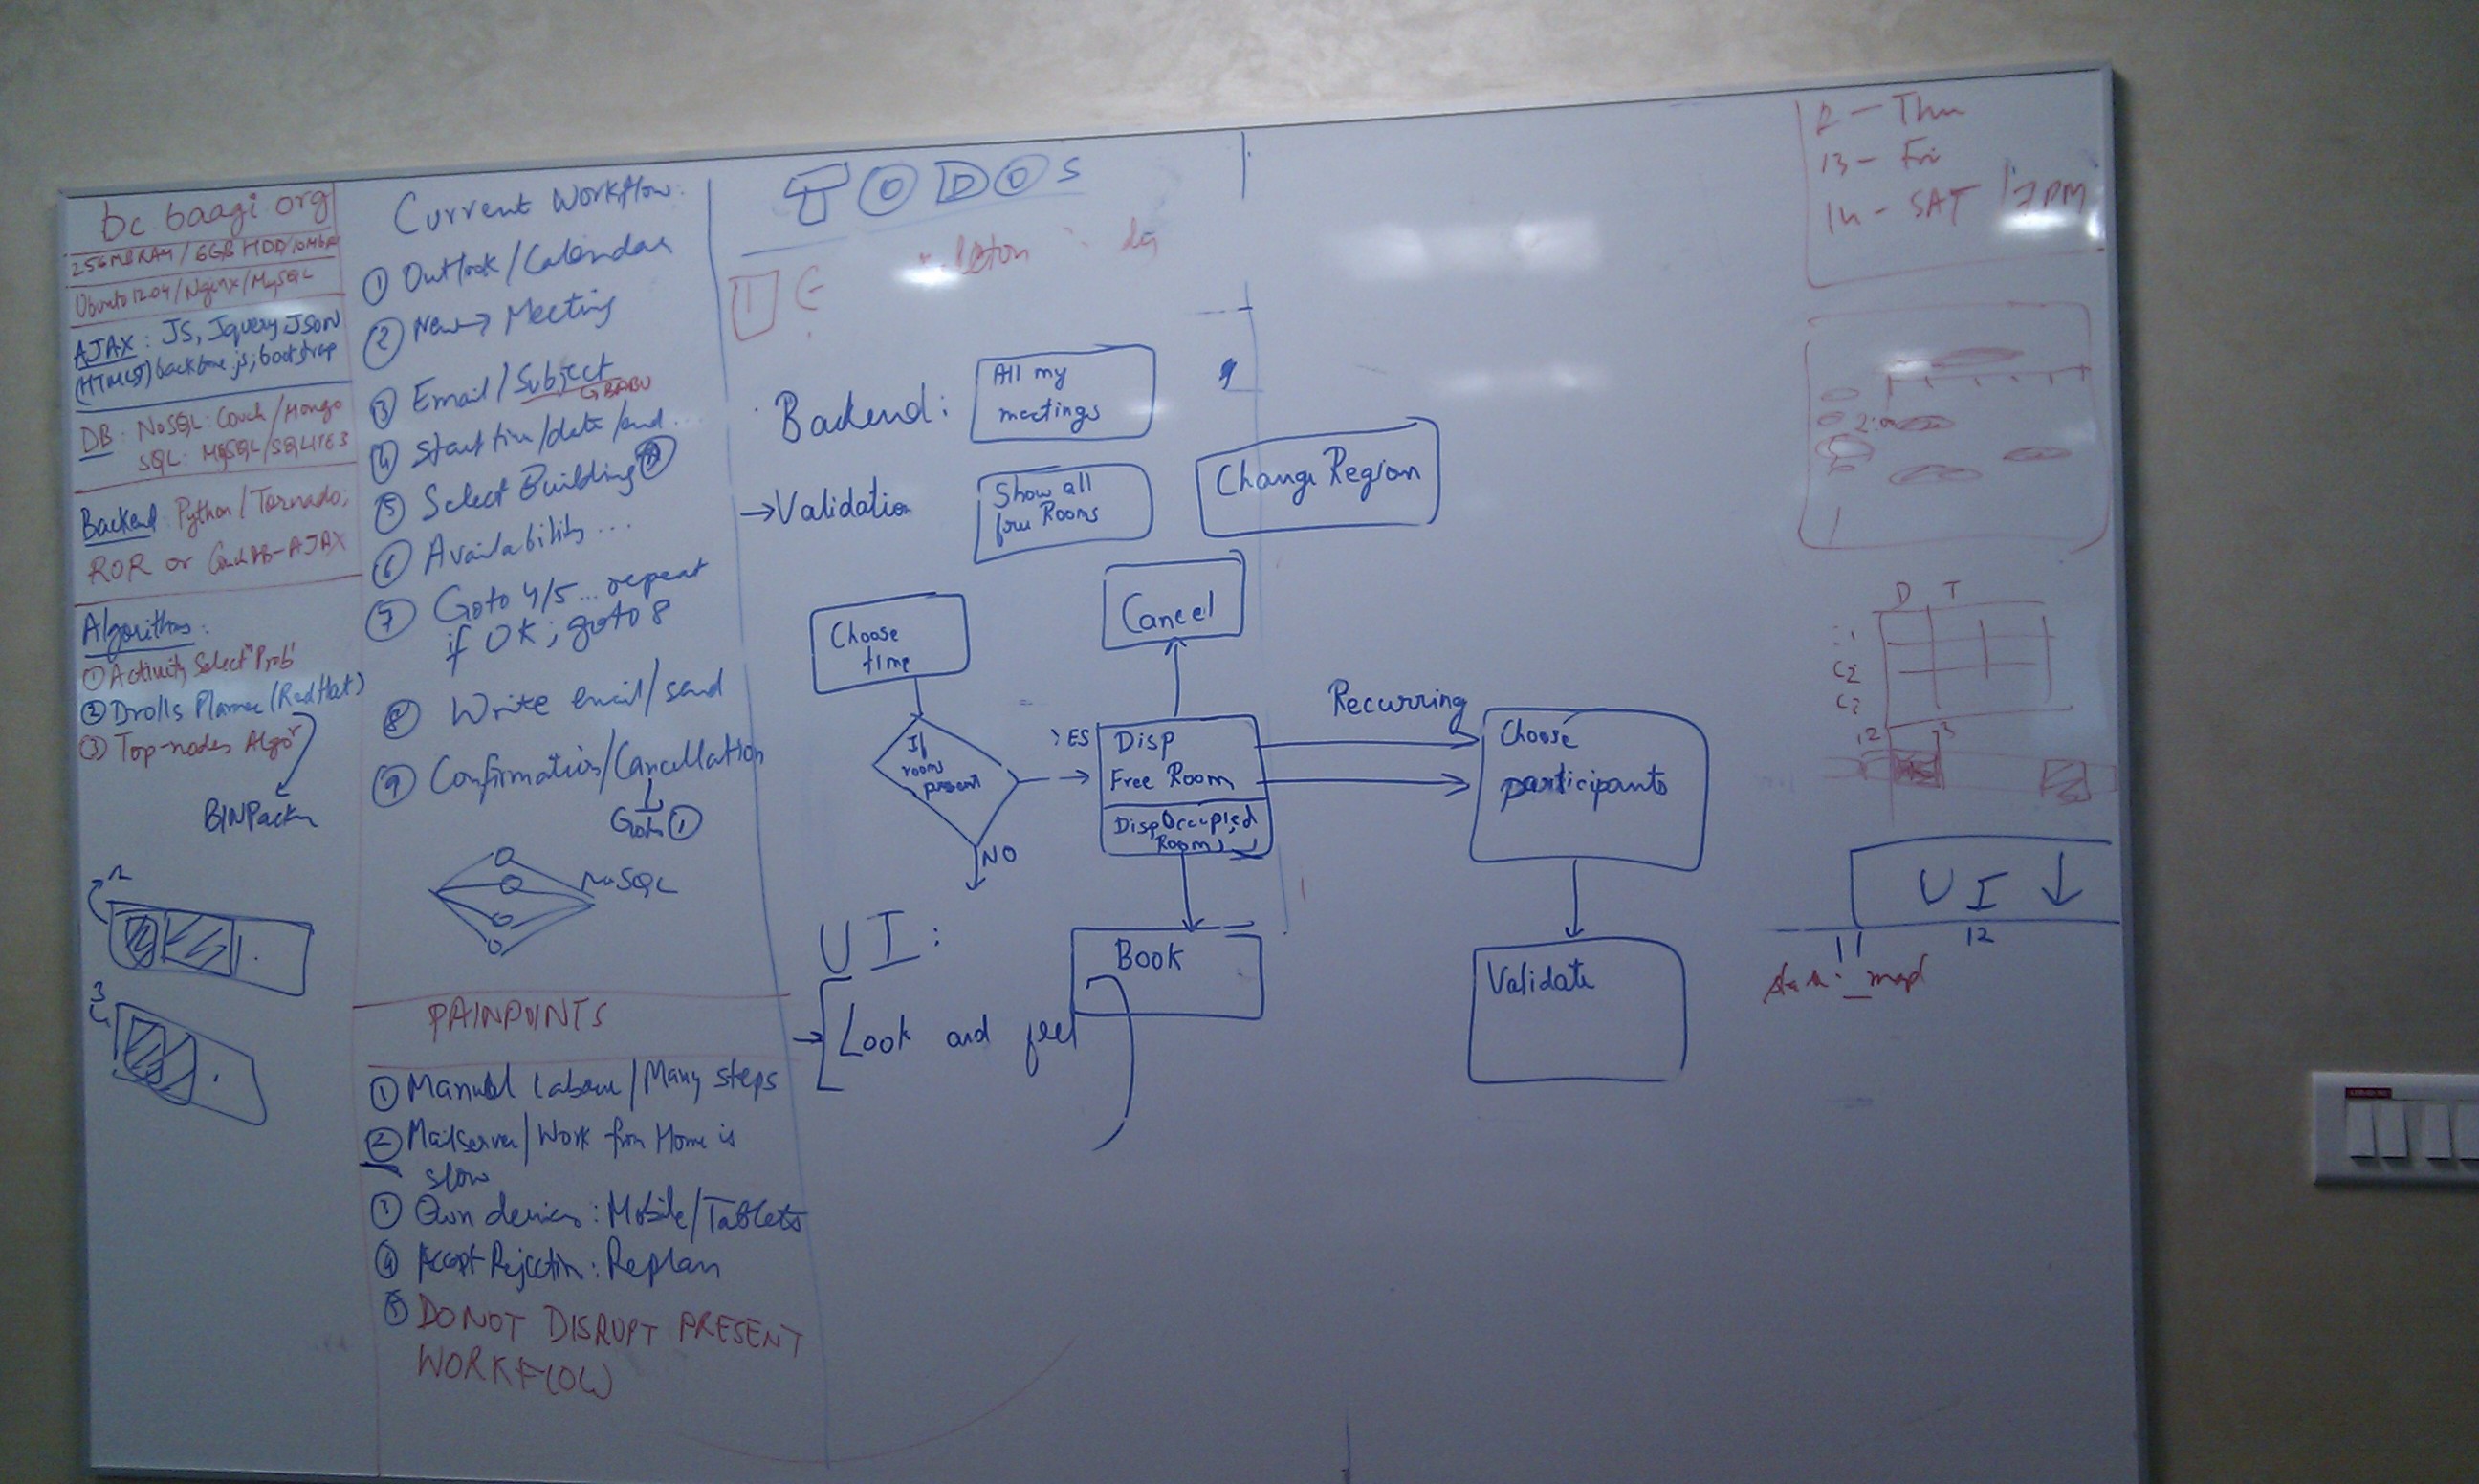 bc.baagi.org
256MB RAM/6GB HDD/10Mbps
Ubuntu 12.04/Nginx/MySQL
AJAX: JS, Jquery JSON
(HTML5) backbone.js; bootstrap
DB: NoSQL: Couch/Mongo
SQL: MySQL/SQLITE3
Backend: Python/Tornado;
ROR or CouchDB-AJAX
Algorithms:
① Activity Select" Prob'
② Drolls Planner (RedHat)
③ Top-nodes Algor
BINPackn
2
3
Current Workflow:
① Outlook/Calendar
② New→ Meeting
③ Email/Subject
GBABU
④ Start time/date/end...
⑤ Select Building
⑥ Availability...
⑦ Goto 4/5... repeat
if OK; goto 8
⑧ Write email/send
⑨ Confirmation/Cancellation
Goto ①
NoSQL
PAINPOINTS
① Manual labour/Many steps
② Mailserver/Work from Home is
slow
③ Own devices: Mobile/Tablets
④ Accept Rejection: Replan
⑤ DO NOT DISRUPT PRESENT
WORKFLOW
TODOS
1
Backend:
All my
meetings
→Validation
Show all
free Rooms
Change Region
Choose
time
Cancel
If
rooms
present
YES
NO
Disp
Free Room
Disp Occupied
Rooms
Recurring
Choose
participants
Book
Validate
UI:
Look and feel
12 - Thu
13 - Fri
14 - SAT 7PM
D T
C2
C3
12 3
UI ↓
11 12